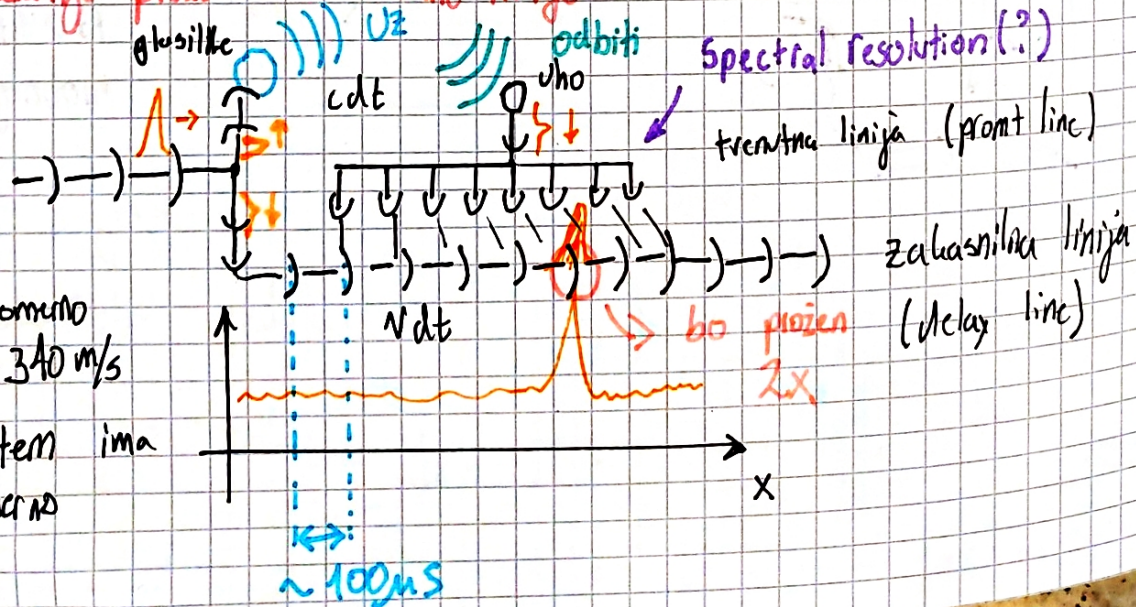 glasilke
UZ
odbiti
Spectral resolution(?)
cdt
uho
trenutna linija (promt line)
zakasnilna linija
(delay line)
Vdt
bo prožen
2x
340 m/s
ima
x
~100μs